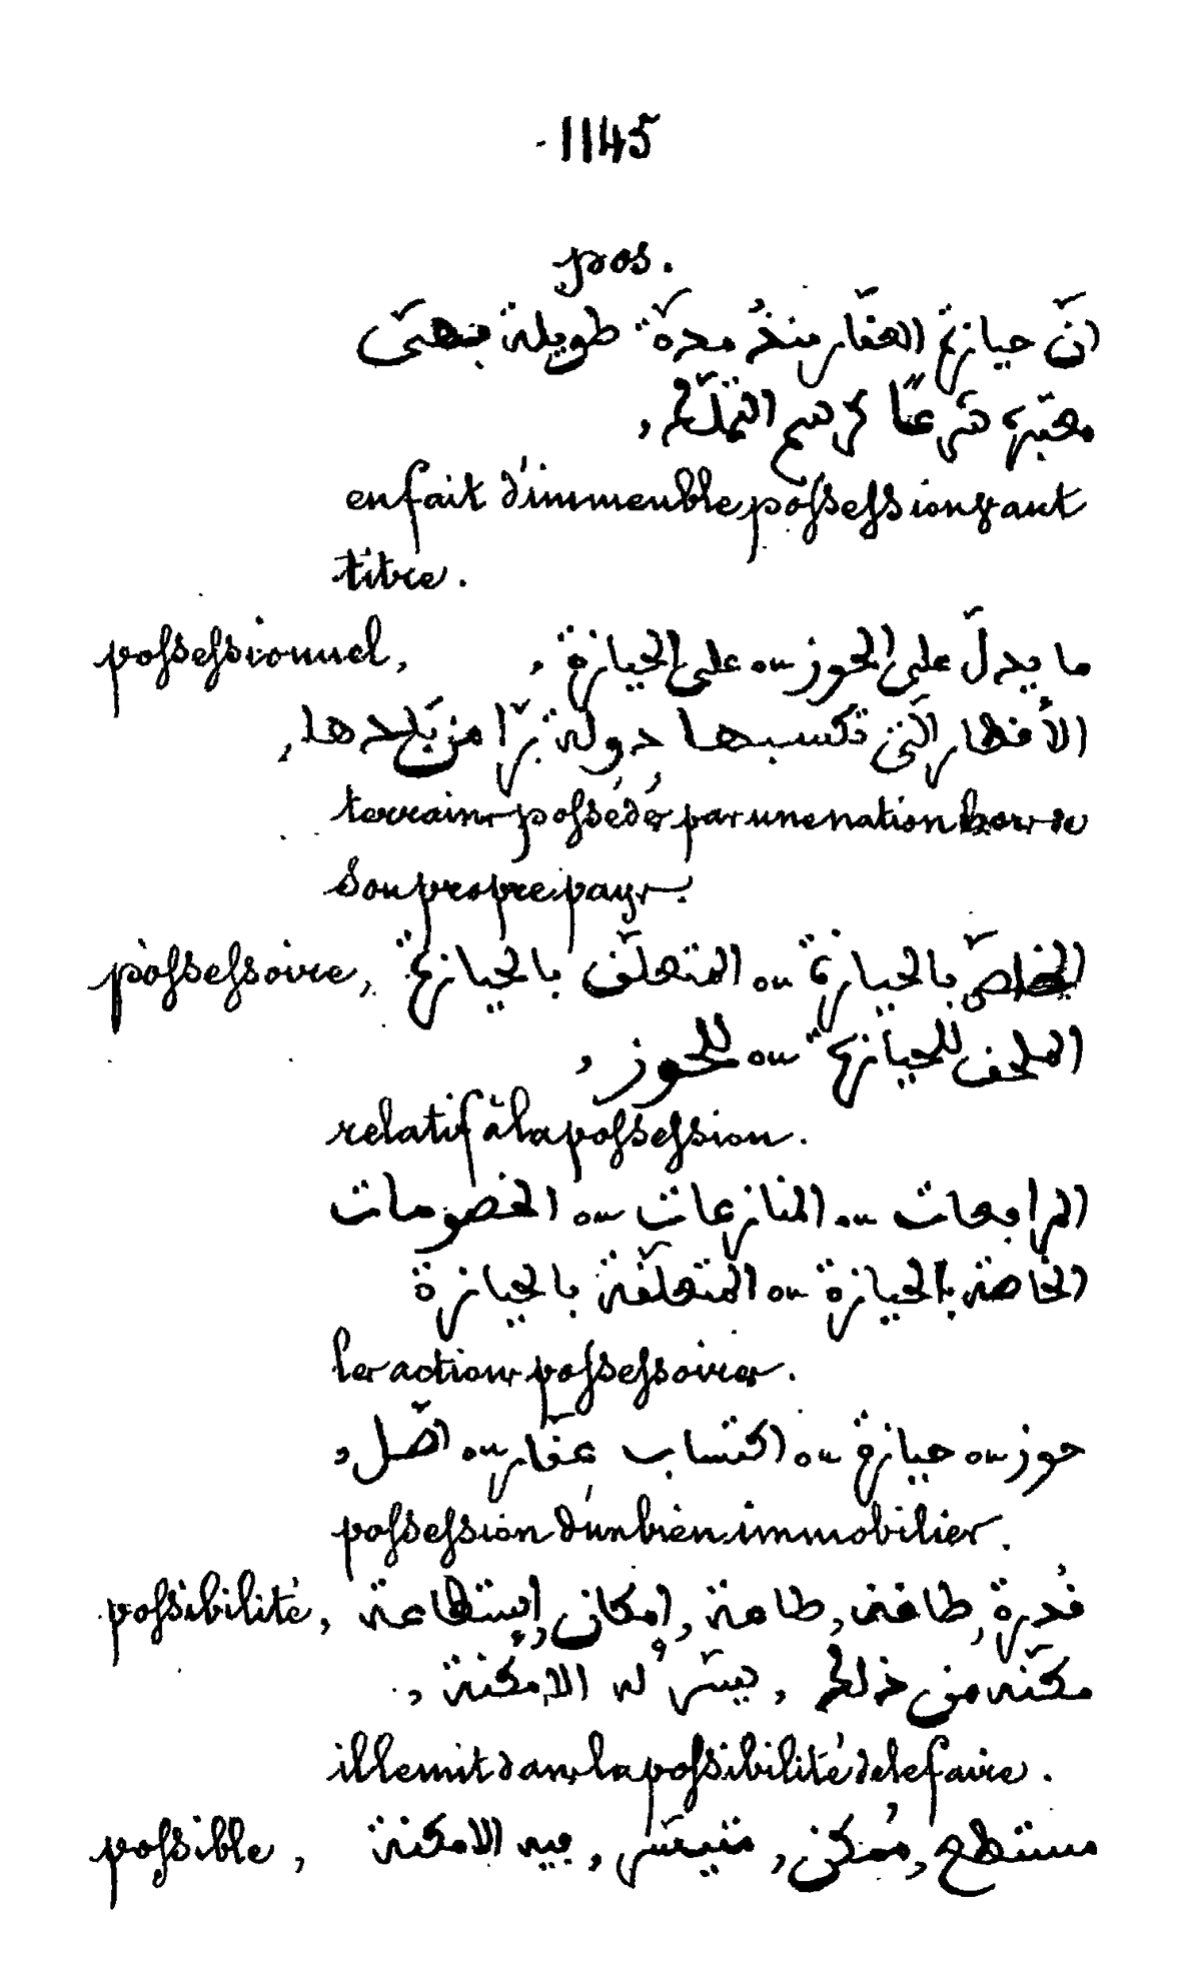 1145
pos.
انّ حيازة العقّار منذُ مدّة طويلة
معتبرة شرعًا كرسم التملّك,
en fait d'immeuble possession vaut
titre.
possessionnel, ما يدلّ على الحوز ou على الحيازة,
الأقطار الّتى تكسبها دولة برّا من بَلَدها,
terrains possédés par une nation hors de
son propre pays.
possessoire, الخاصّ بالحيازة ou المتعلّق بالحيازة
الملحق للحيازة ou للحوز,
relatif à la possession.
المرافعات ou المنازعات ou الخصومات
الخاصة بالحيازة ou المتعلّقة بالحيازة
les actions possessoires.
حوز ou حيازة ou اكتساب عقّار ou اصل,
possession d'un bien immobilier.
possibilité, قُدرة, طاقة, طاعة, إمكان, إستطاعة
مكّنه من ذلك, يسّر له الإمكنة,
il le mit dans la possibilité de le faire.
possible, مستطع, مُمكن, متيسّر, فيه الامكنة